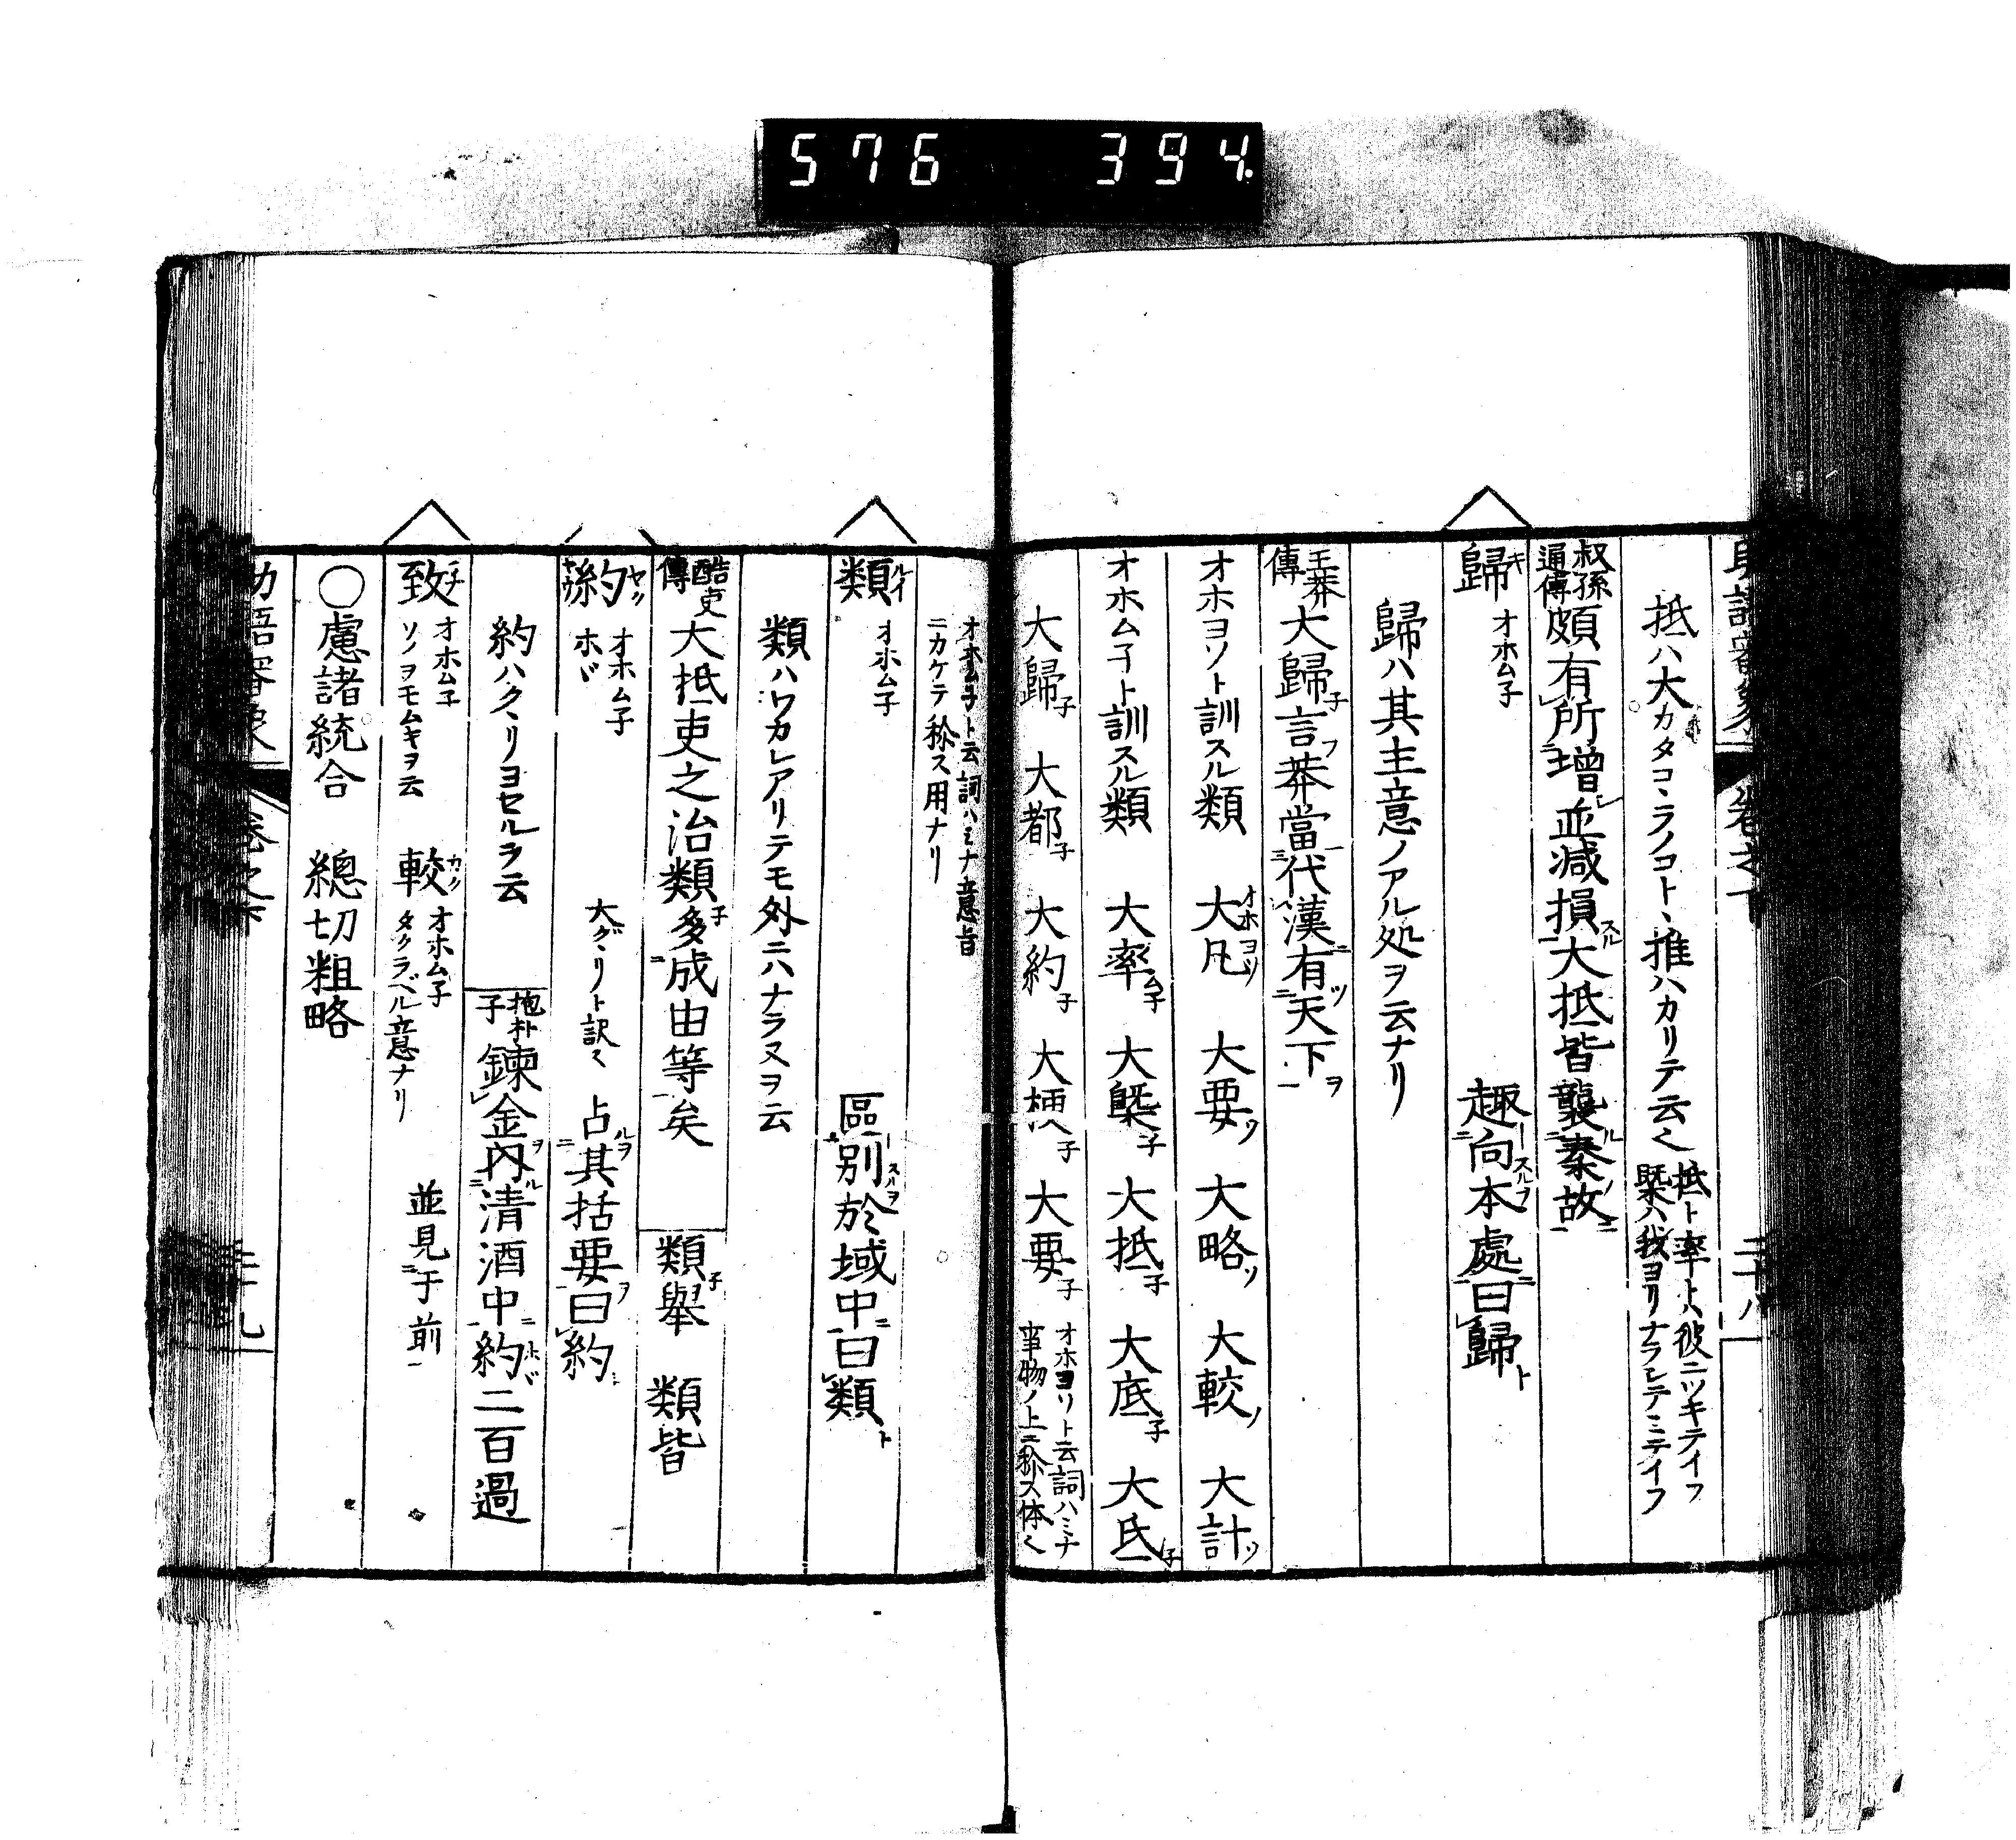 576 394.
抵ハ大カタコヽラノコトヽ推ハカリテ云く 抵ト率トハ彼ニツキテイフ
槩ハ我ヨリナラシテミテイフ
叔孫通傳 頗有所増並減損スル大抵皆襲秦故ニ
歸キ オホム子 趣向スルヲ本處ニ曰歸ト
歸ハ其主意ノアル処ヲ云ナリ
王莽傳 大歸子言フ莽當代漢ニ有ツ天下ヲ
オホヨソト訓スル類 大凡オホヨソ 大要ソ 大略ソ 大較ソ 大計ソ
オホム子ト訓スル類 大率ム子 大槩子 大抵子 大底子 大氐子
大歸子 大都子 大約子 大梗子 大要子 オホヨソト云詞ハミナ
事物ノ上ニ称ス体く
オホム子ト云詞ハミナ意旨
ニカケテ称ス用ナリ
類ルイ オホム子 區別スルヲ於域中ニ曰類ト
類ハワカレアリテモ外ニハナラヌヲ云
酷吏傳 大抵吏之治類子多成由等矣 類子舉 類皆
約ヤク オホム子 ホド 大グヽリト訳く 占其括要ヲ曰約
約ハクヽリヨセルヲ云 抱朴子 鍊金ヲ内ル清酒中ニ約ホド二百過
致チ オホム子 ソノヲモムキヲ云 較カク オホム子 タクラベル意ナリ 並見于前
○慮諸統合 總切粗略